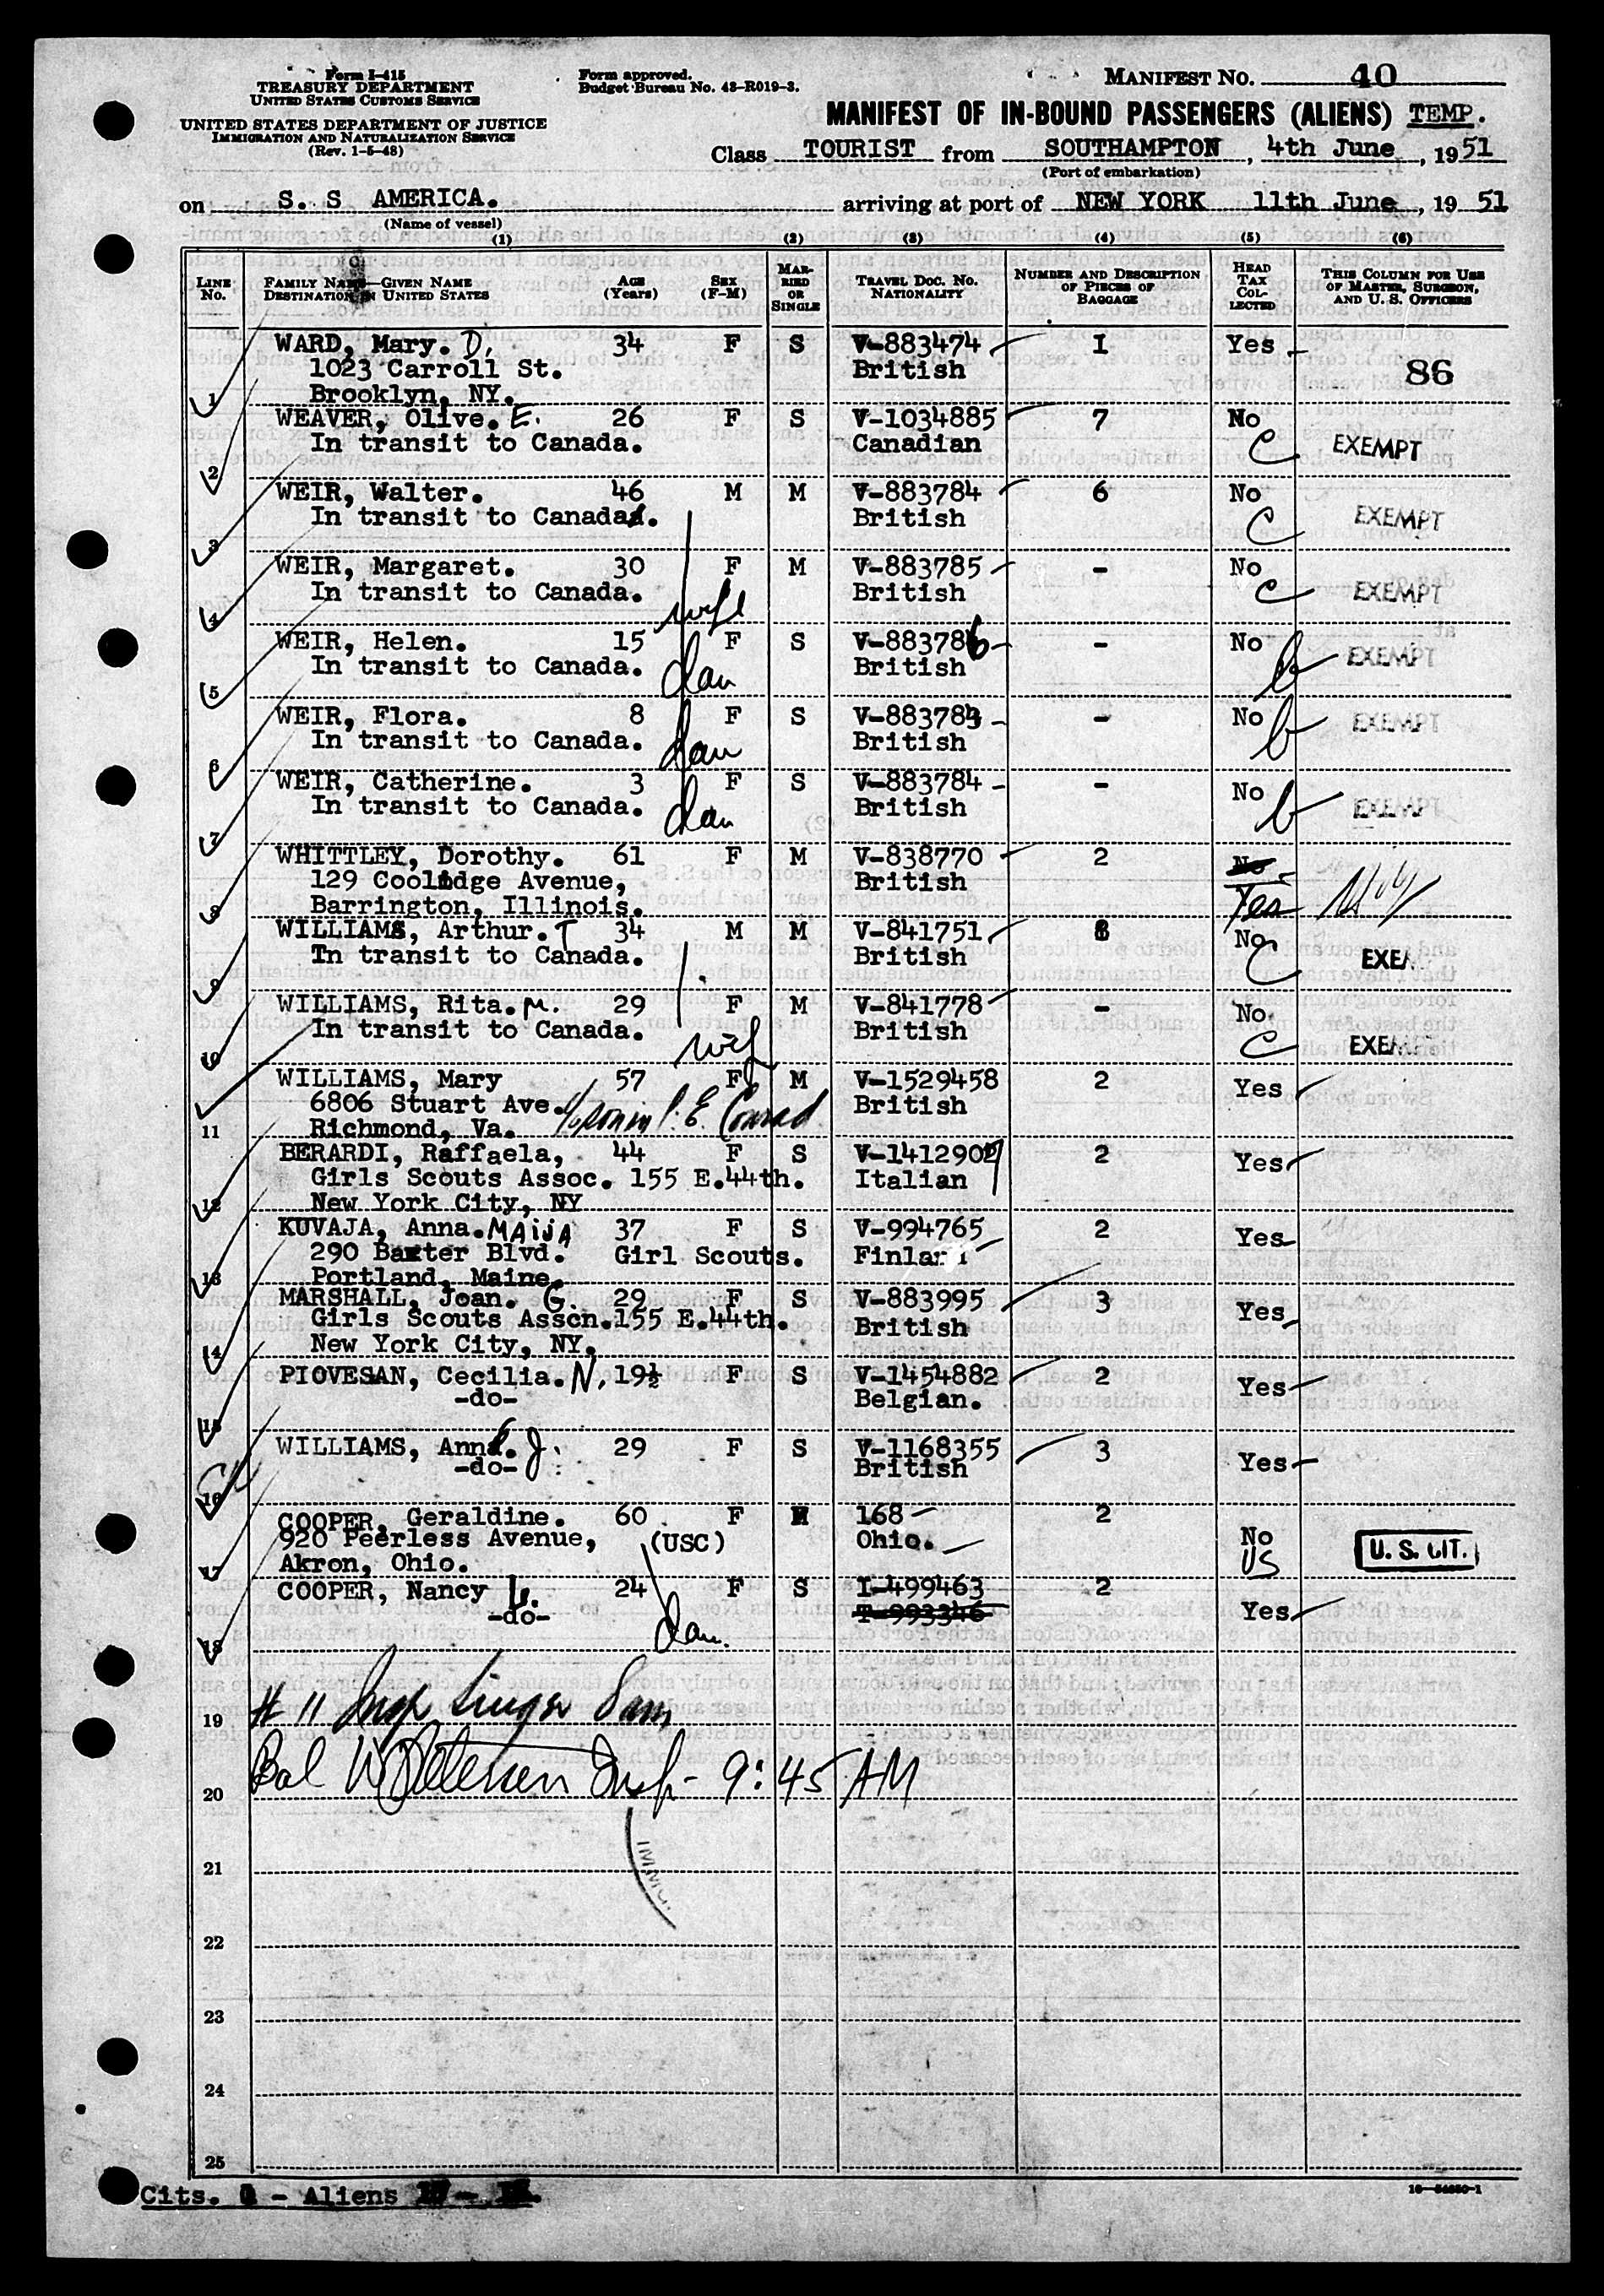 Form I-415
TREASURY DEPARTMENT
UNITED STATES CUSTOMS SERVICE
UNITED STATES DEPARTMENT OF JUSTICE
IMMIGRATION AND NATURALIZATION SERVICE
(Rev. 1-5-48)
Form approved.
Budget Bureau No. 43-R019-3.
MANIFEST NO. 40
MANIFEST OF IN-BOUND PASSENGERS (ALIENS) TEMP.
Class TOURIST from SOUTHAMPTON, 4th June, 1951
(Port of embarkation)
on S. S AMERICA. arriving at port of NEW YORK 11th June, 1951
(Name of vessel)
(1) (2) (3) (4) (5) (6)
LINE No. FAMILY NAME—GIVEN NAME DESTINATION IN UNITED STATES AGE (Years) SEX (F-M) MARRIED OR SINGLE TRAVEL DOC. NO. NATIONALITY NUMBER AND DESCRIPTION OF PIECES OF BAGGAGE HEAD TAX COLLECTED THIS COLUMN FOR USE OF MASTER, SURGEON, AND U. S. OFFICERS
WARD, Mary. D. 34 F S V-883474 I Yes
1023 Carroll St. British 86
1 Brooklyn, NY.
WEAVER, Olive. E. 26 F S V-1034885 7 No
In transit to Canada. Canadian C EXEMPT
2
WEIR, Walter. 46 M M V-883784 6 No
In transit to Canada. British C EXEMPT
3
WEIR, Margaret. 30 F M V-883785 - No
In transit to Canada. wife British C EXEMPT
4
WEIR, Helen. 15 F S V-883786 - No
In transit to Canada. dau British b EXEMPT
5
WEIR, Flora. 8 F S V-883783 - No
In transit to Canada. dau British b EXEMPT
6
WEIR, Catherine. 3 F S V-883784 - No
In transit to Canada. dau British b EXEMPT
7
WHITTLEY, Dorothy. 61 F M V-838770 2 No
129 Coolidge Avenue, British Yes
8 Barrington, Illinois.
WILLIAMS, Arthur. T 34 M M V-841751 8 No
In transit to Canada. British C EXEM
9
WILLIAMS, Rita. M. 29 F M V-841778 - No
In transit to Canada. wif British C EXEM
10
WILLIAMS, Mary 57 F M V-1529458 2 Yes
6806 Stuart Ave. E. Conrad British
11 Richmond, Va.
BERARDI, Raffaela, 44 F S V-1412907 2 Yes
Girls Scouts Assoc. 155 E.44th. Italian
12 New York City, NY
KUVAJA, Anna. MAIJA 37 F S V-994765 2 Yes
290 Baxter Blvd. Girl Scouts. Finland
13 Portland, Maine.
MARSHALL, Joan. G. 29 F S V-883995 3 Yes
Girls Scouts Asscn. 155 E.44th. British
14 New York City, NY.
PIOVESAN, Cecilia. N. 19½ F S V-1454882 2 Yes
-do- Belgian.
15
WILLIAMS, Ann. J. 29 F S V-1168355 3 Yes
-do- British
16
COOPER, Geraldine. 60 F M 168 2 No
920 Peerless Avenue, (USC) Ohio. US U. S. CIT.
17 Akron, Ohio.
COOPER, Nancy L. 24 F S I-499463 2 Yes
-do- dau. T-993346
18
19 # 11 Insp Singer 8 am
20 Bal W Petersen Insp- 9:45 AM
IMMIG.
21
22
23
24
25
Cits. - Aliens
16-54650-1